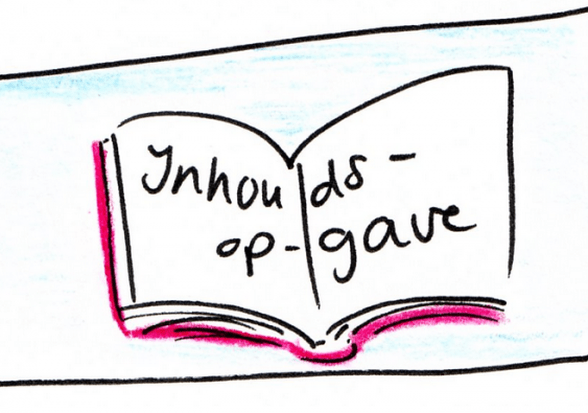 Inhouds-
op-gave